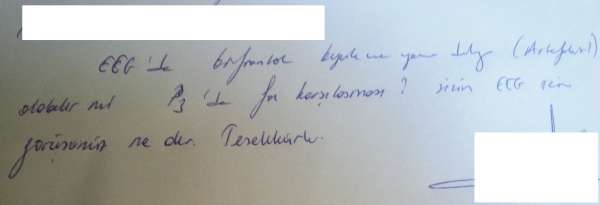 EEG 'da bifrontal keskin ve yavaş dalga (Artefakt)
olabilir mi P3 'de faz karşılaşması? sizin EEG için
görüşünüz ne dir. Teşekkürler.